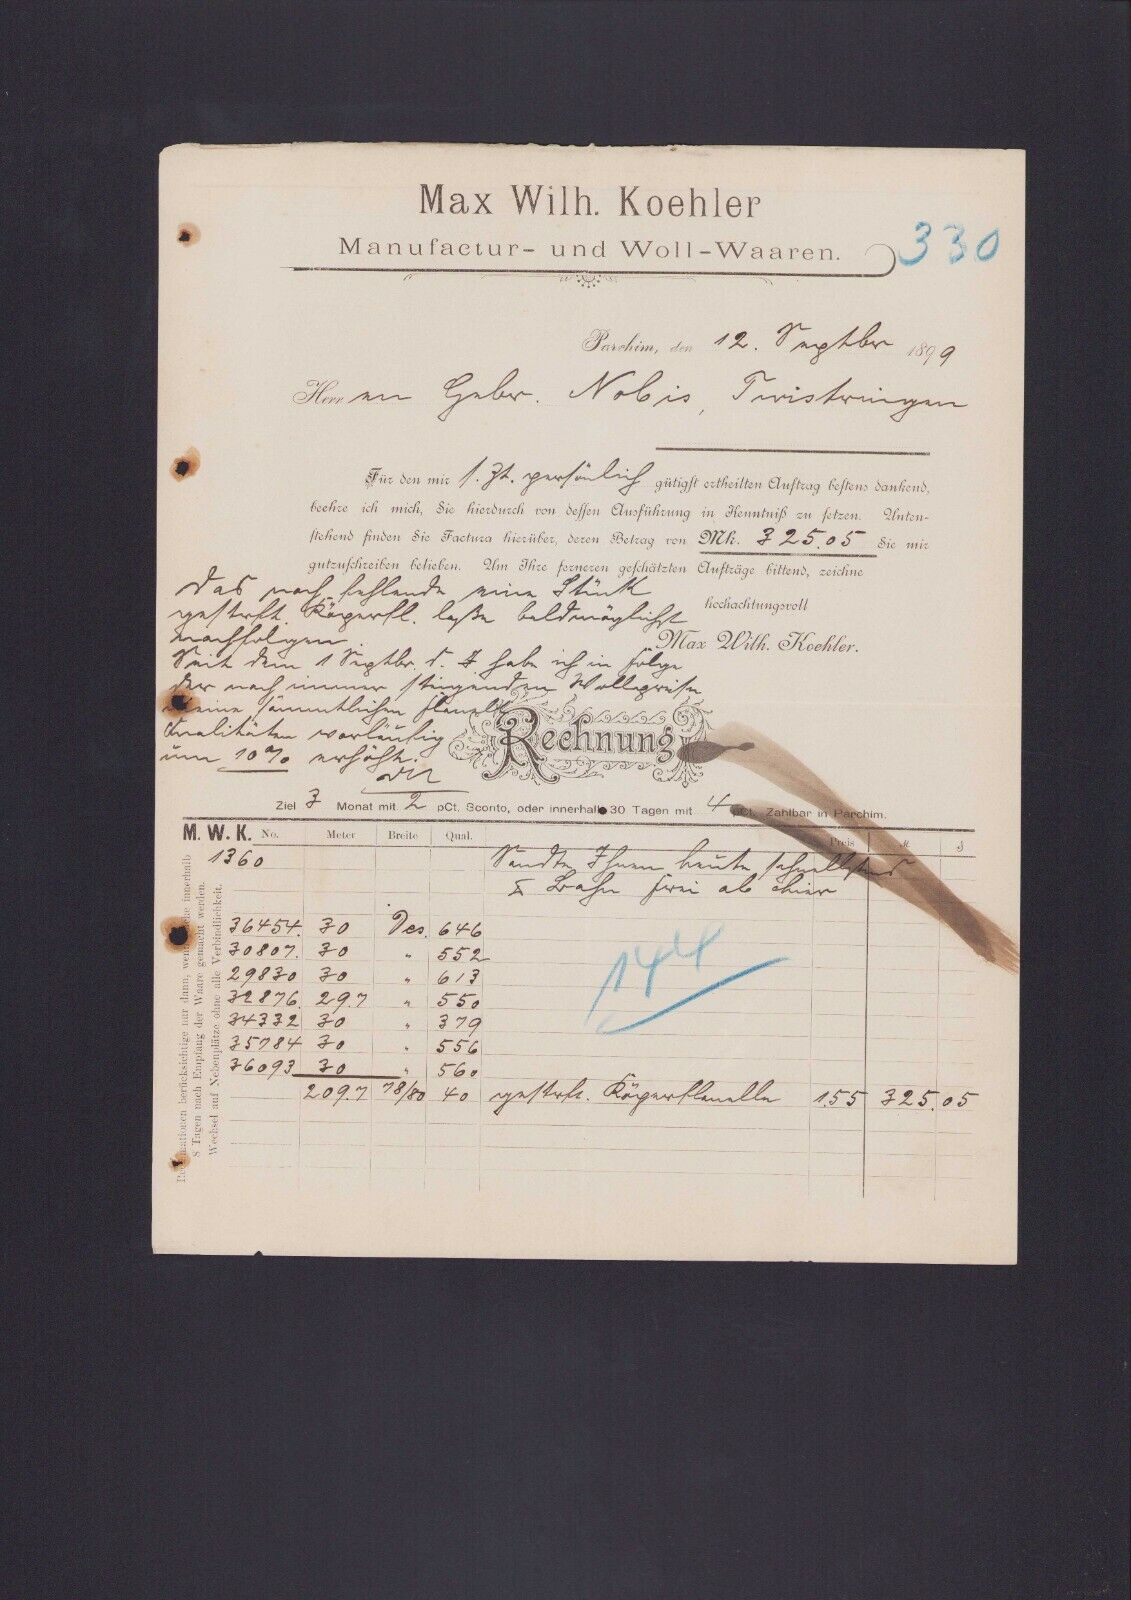 Max Wilh. Koehler
Manufactur- und Woll-Waaren.
330
Parchim, den 12. Septbr 1899
Herr en Gebr. Nobis, Twistringen
Für den mir s. Zt. persönlich gütigst ertheilten Auftrag bestens dankend,
beehre ich mich, Sie hierdurch von dessen Ausführung in Kenntniß zu setzen. Unten-
stehend finden Sie Factura hierüber, deren Betrag von Mk. 325.05 Sie mir
gutzuschreiben belieben. Um Ihre ferneren geschätzten Aufträge bittend, zeichne
hochachtungsvoll
Max Wilh. Koehler.
Das noch fehlende eine Stück
gestrft. Köperfl. laße baldmöglichst
nachfolgen.
Seit dem 1 Septbr. d. J habe ich in folge
der noch immer steigenden Wollpreise
meine sämmtlichen Flanell
Qualitäten vorläufig
um 10% erhöht.
Rechnung
Ziel 3 Monat mit 2 pCt. Sconto, oder innerhalb 30 Tagen mit 4 pCt. Zahlbar in Parchim.
M. W. K. No. Meter Breite Qual. Preis M ₰
1360 Sandte Ihnen heute schnellstens
Bahn frei ab hier
36454. 30 Des. 646
30807. 30 " 552
29830 30 " 613
32876. 29.7 " 550
34332 30 " 379
35784 30 " 556
36093 30 " 560
209.7 78/80 40 gestrft. Köperflanelle 1.55 325.05
144
Reclamationen berücksichtige nur dann, wenn solche innerhalb
8 Tagen nach Empfang der Waare gemacht werden.
Wechsel auf Nebenplätze ohne alle Verbindlichkeit.